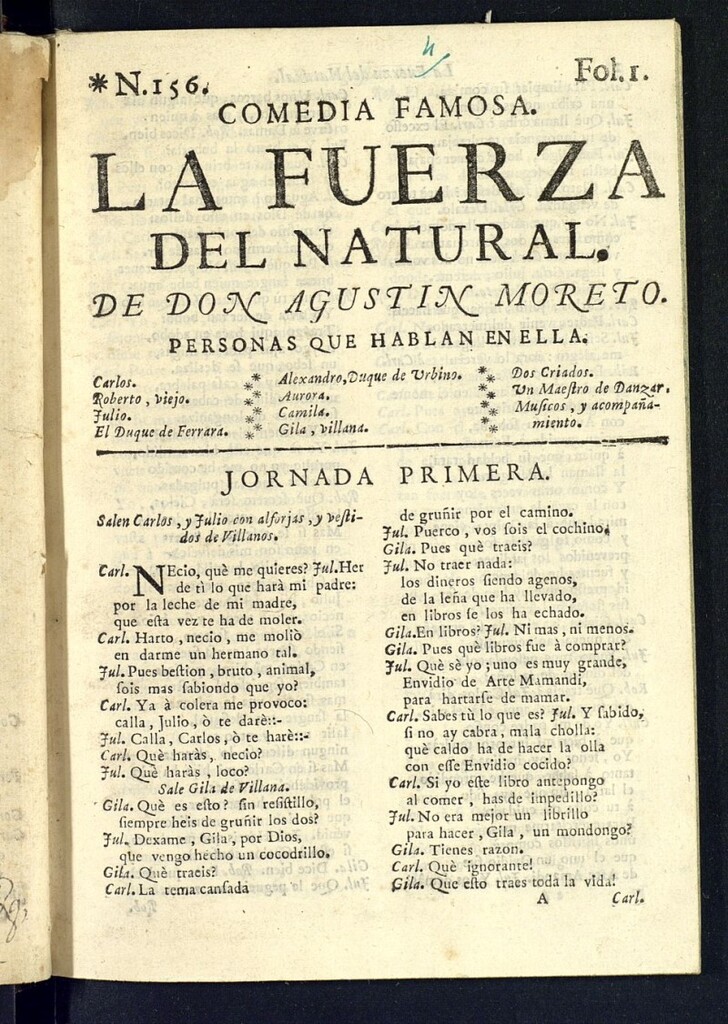 *N.156.
Fol.1.
COMEDIA FAMOSA.
LA FUERZA
DEL NATURAL.
DE DON AGUSTIN MORETO.
PERSONAS QUE HABLAN EN ELLA.
Carlos.
Roberto, viejo.
Julio.
El Duque de Ferrara.
Alexandro, Duque de Urbino.
Aurora.
Camila.
Gila, villana.
Dos Criados.
Un Maeſtro de Danzar.
Muſicos, y acompaña-
miento.
JORNADA PRIMERA.
Salen Carlos, y Julio con alforjas, y veſti-
dos de Villanos.
Carl. NEcio, què me quieres? Jul. Her
de tì lo que harà mi padre:
por la leche de mi madre,
que eſta vez te ha de moler.
Carl. Harto, necio, me moliò
en darme un hermano tal.
Jul. Pues beſtion, bruto, animal,
ſois mas ſabiondo que yo?
Carl. Ya à colera me provoco:
calla, Julio, ò te darè::-
Jul. Calla, Carlos, ò te harè::-
Carl. Què haràs, necio?
Jul. Què haràs, loco?
Sale Gila de Villana.
Gila. Què es eſto? ſin reſiſtillo,
ſiempre heis de gruñir los dos?
Jul. Dexame, Gila, por Dios,
que vengo hecho un cocodrillo.
Gila. Què traeis?
Carl. La tema canſada
de gruñir por el camino.
Jul. Puerco, vos ſois el cochino.
Gila. Pues què traeis?
Jul. No traer nada:
los dineros ſiendo agenos,
de la leña que ha llevado,
en libros ſe los ha echado.
Gila. En libros? Jul. Ni mas, ni menos.
Gila. Pues què libros fue à comprar?
Jul. Què sè yo; uno es muy grande,
Envidio de Arte Mamandi,
para hartarſe de mamar.
Carl. Sabes tù lo que es? Jul. Y ſabido,
ſi no ay cabra, mala cholla:
què caldo ha de hacer la olla
con eſſe Envidio cocido?
Carl. Si yo eſte libro antepongo
al comer, has de impedillo?
Jul. No era mejor un librillo
para hacer, Gila, un mondongo?
Gila. Tienes razon.
Carl. Què ignorante!
Gila. Que eſto traes toda la vida!
A
Carl.